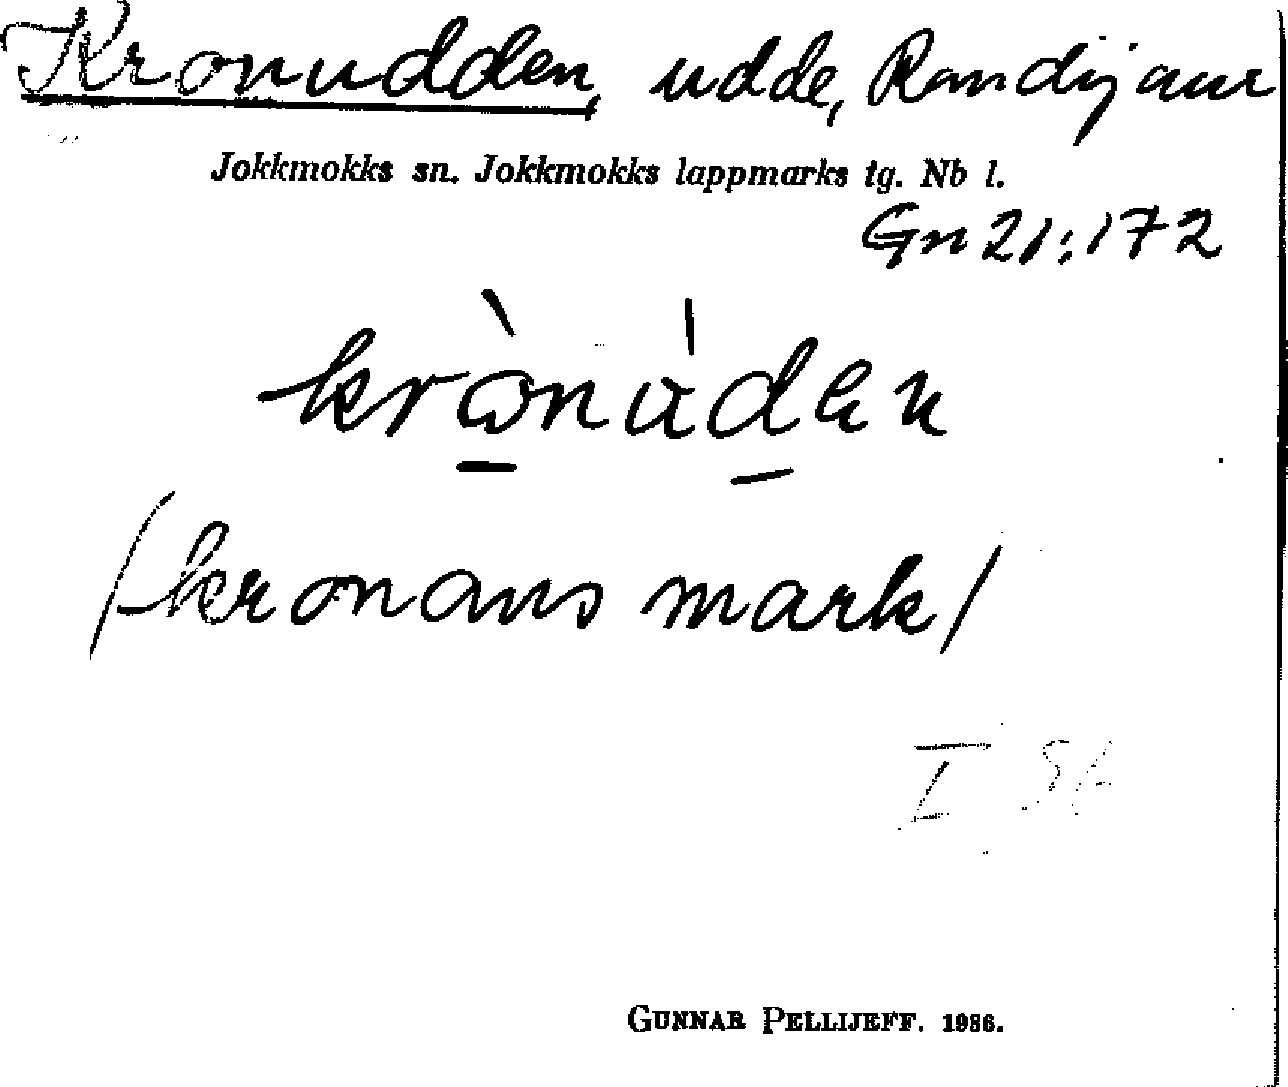 Kronudden, udde, Randijaur
Jokkmokks sn. Jokkmokks lappmarks tg. Nb l.
Gn 21:172
krònu̍den
/kronans mark/
I
GUNNAR PELLIJEFF. 1986.